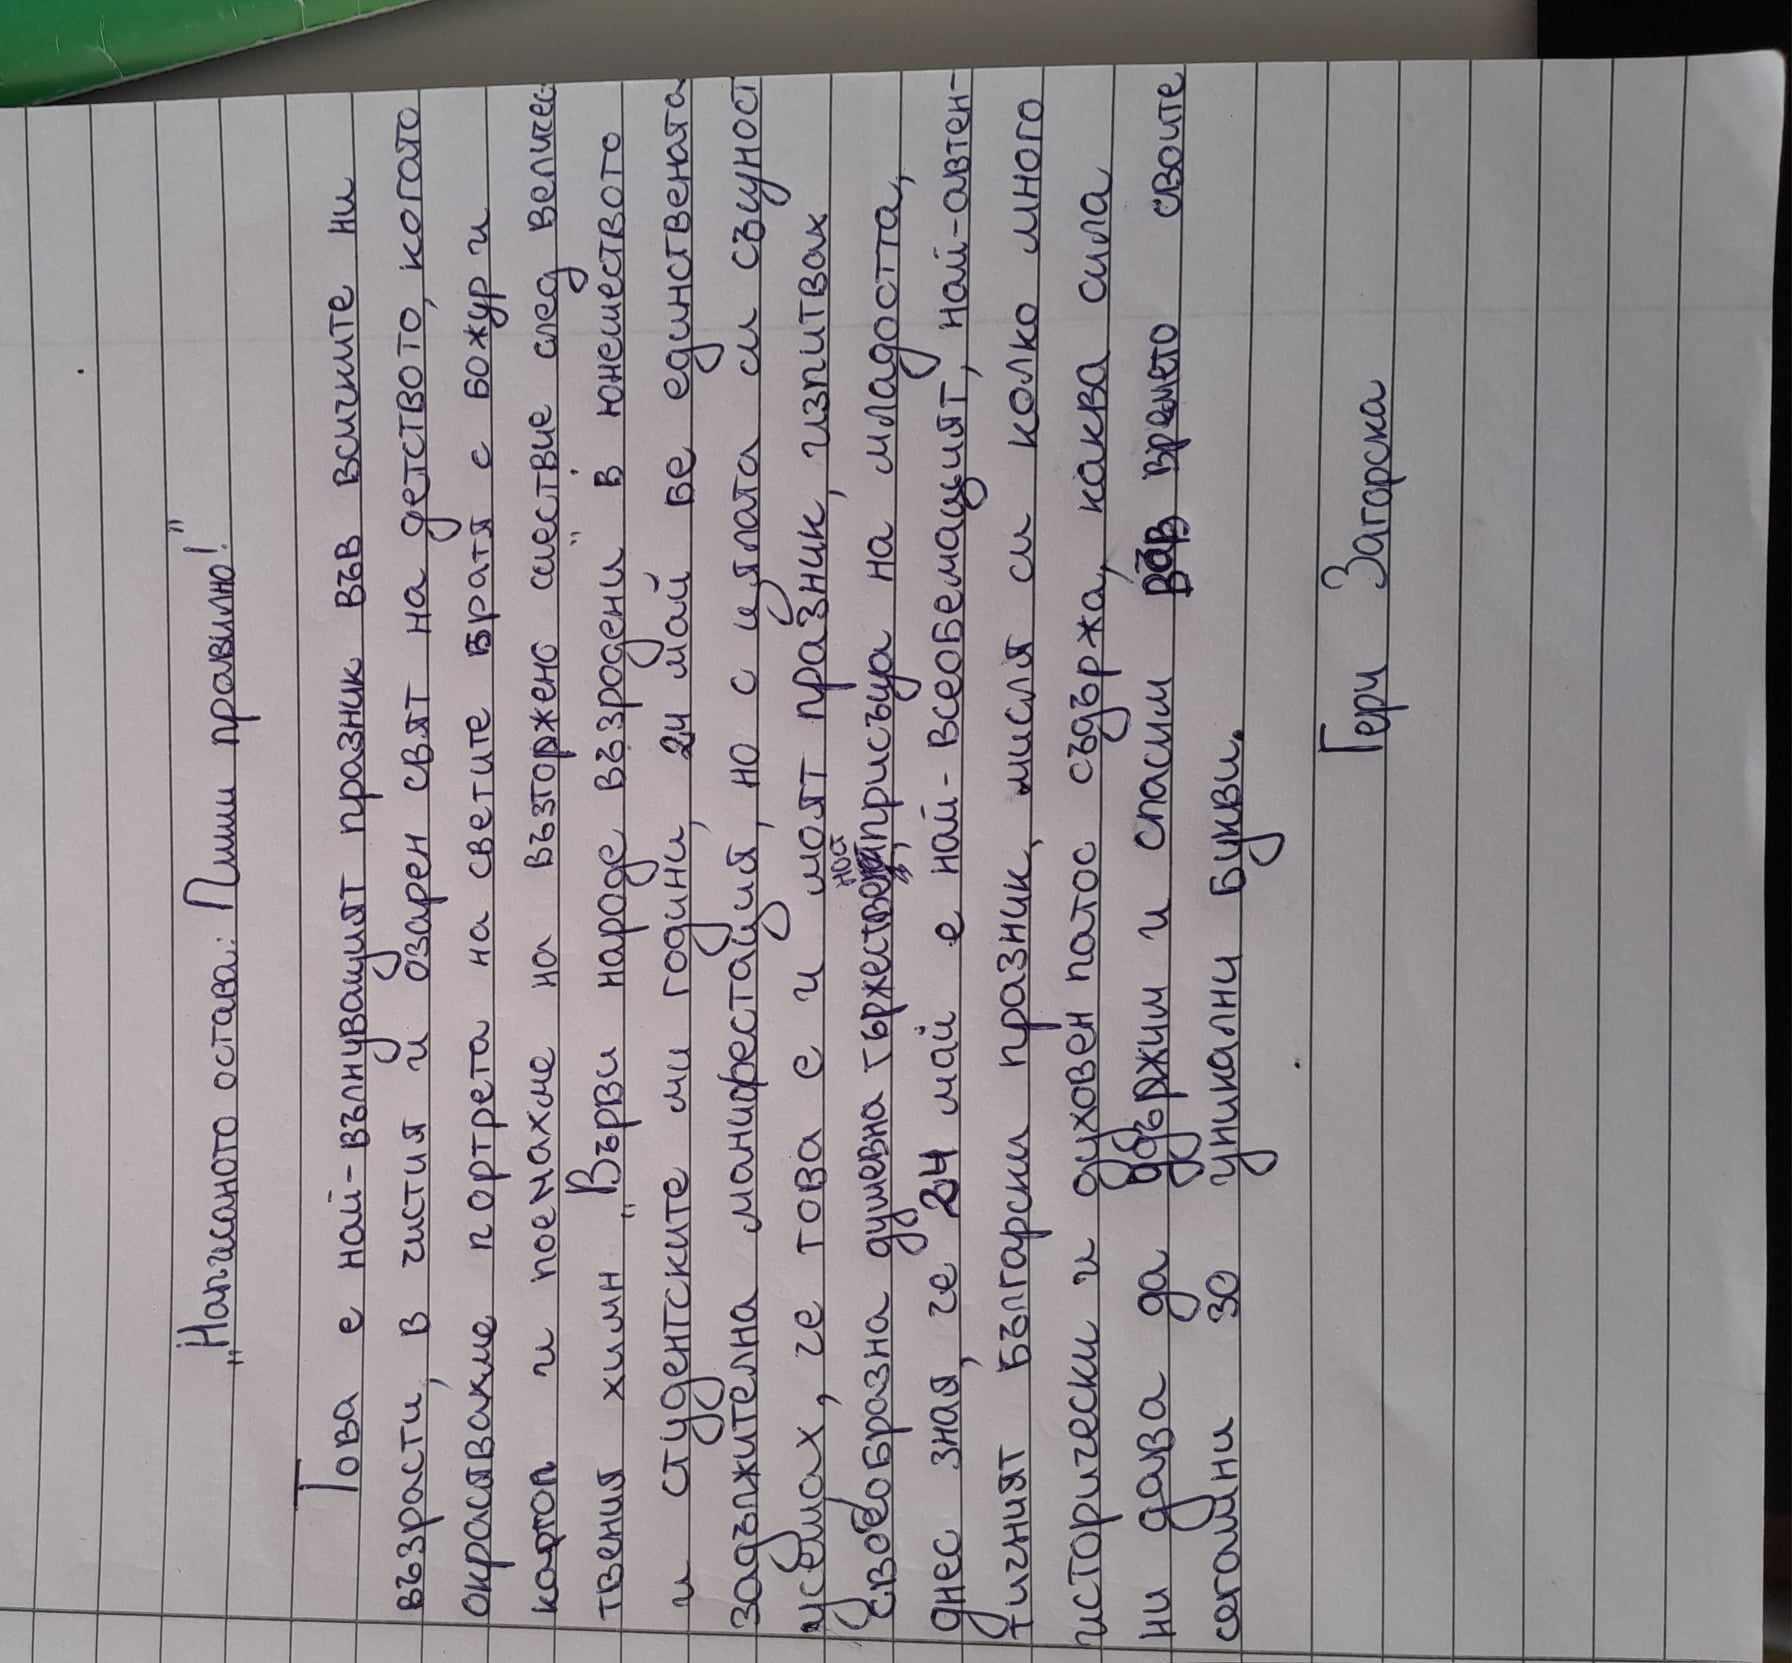 „Написаното остава: Пиши правилно!"
Това е най-вълнуващият празник във всичките ни
възрасти, в чистия и озарен свят на детството, когато
окрасявахме портрета на светите братя с божур и
картоп и поемахме на възторжено шествие след величес-
твения химн „Върви народе възродени" в юношеството
и студентските ми години, 24 май бе единствената
задължителна манифестация, но с цялата си същност
усещах, че това е и моят празник, изпитвах
своеобразна душевна тържественост, присъща на младостта,
днес зная, че 24 май е най-всеобемащият, най-автен-
тичният български празник, мисля си колко много
исторически и духовен патос съдържа, каква сила
ни дава да удържим и спасим във времето своите
сегашни 30 уникални букви.
Гери Загорска